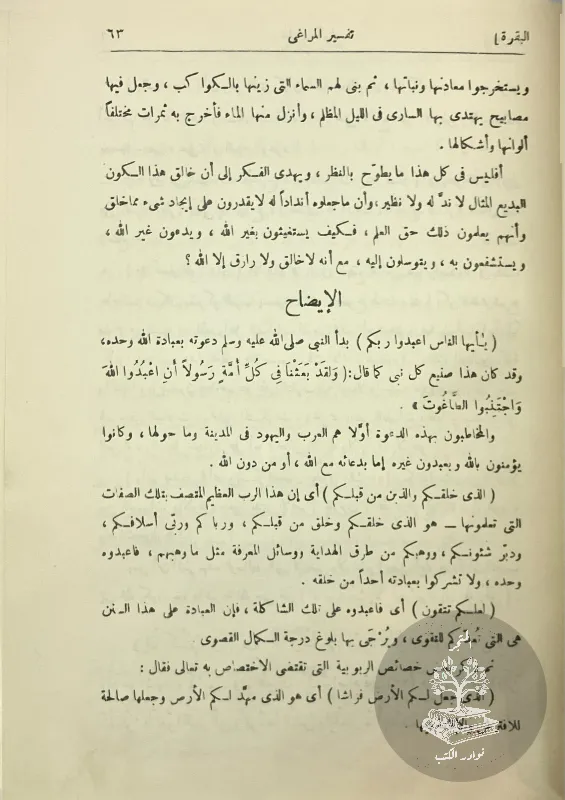 البقرة] تفسير المراغى ٦٣
ويستخرجوا معادنها ونباتها ، ثم بنى لهم السماء التى زينها بالكواكب ، وجعل فيها
مصابيح يهتدى بها السارى فى الليل المظلم ، وأنزل منها الماء فأخرج به ثمرات مختلفاً
ألوانها وأشكالها .
أفليس فى كل هذا ما يطوّح بالنظر ، ويهدى الفكر إلى أن خالق هذا الكون
البديع المثال لا ندَّ له ولا نظير ، وأن ماجعلوه أنداداً له لايقدرون على إيجاد شىء مماخلق
وأنهم يعلمون ذلك حق العلم ، فكيف يستغيثون بغير الله ، ويدعون غير الله ،
ويستشفعون به ، ويتوسلون إليه ، مع أنه لاخالق ولا رازق إلا الله ؟
الإيضاح
( يٰأيها الناس اعبدوا ربكم ) بدأ النبى صلى الله عليه وسلم دعوته بعبادة الله وحده،
وقد كان هذا صنيع كل نبى كما قال: ( وَلَقَدْ بَعَثْنَا فِى كُلِّ أُمَّةٍ رَسُولاً أَنِ اعْبُدُوا اللهَ
وَاجْتَنِبُوا الطَّاغُوتَ » .
والمخاطبون بهذه الدعوة أوّلا هم العرب واليهود فى المدينة وما حولها ، وكانوا
يؤمنون بالله ويعبدون غيره إما بدعائه مع الله ، أو من دون الله .
( الذى خلقكم والذين من قبلكم ) أى إن هذا الرب العظيم المتصف بتلك الصفات
التى تعلمونها ــ هو الذى خلقكم وخلق من قبلكم ، ورباكم وربّى أسلافكم ،
ودبّر شئونكم ، ووهبكم من طرق الهداية ووسائل المعرفة مثل ما وهبهم ، فاعبدوه
وحده ، ولا تشركوا بعبادته أحداً من خلقه .
( لعلكم تتقون ) أى فاعبدوه على تلك الشاكلة ، فإن العبادة على هذا السنن
هى التى تُعدّكم للتقوى ، ويُرْجَى بها بلوغ درجة الكمال القصوى .
ثم خصائص الربوبية التى تقتضى الاختصاص به تعالى فقال :
( الذى جعل لكم الأرض فراشا ) أى هو الذى مهّد لكم الأرض وجعلها صالحة
نوادر الكتب